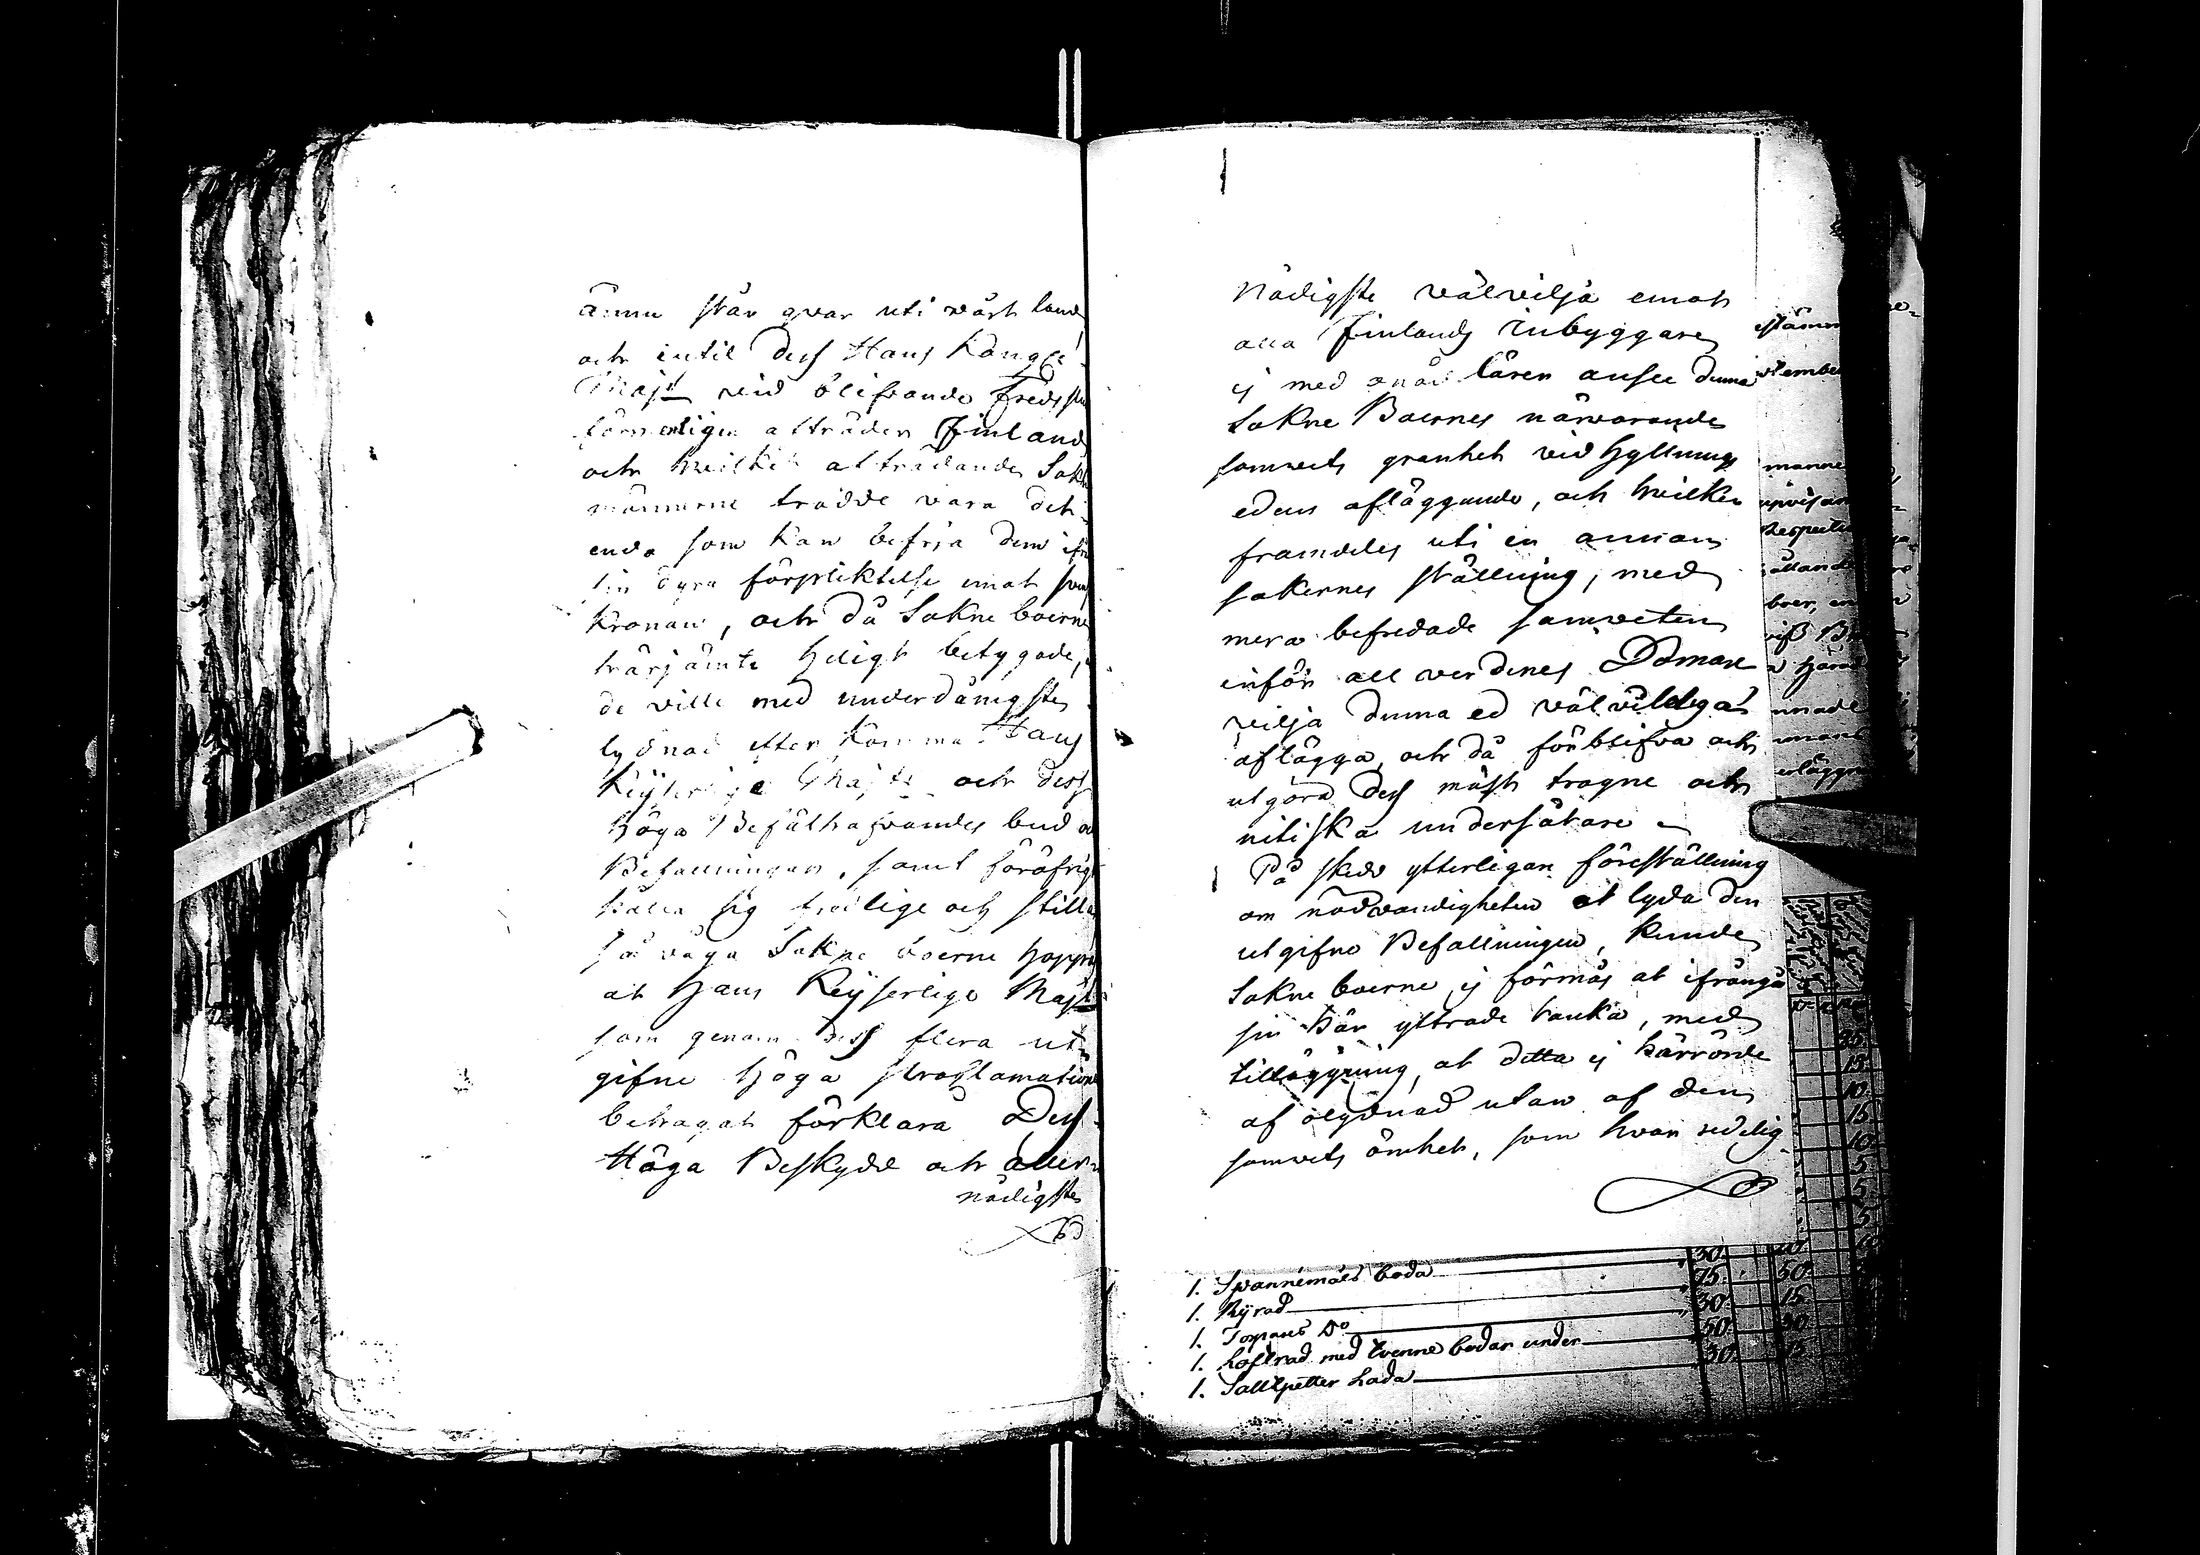 ännu står qvar uti vårt land
och intil dess Hans Kongl.
Majt vid blifvande Fredsslu
förmenligen afträder Finland
och hvilket afträdande Sokn
männerne trodde vara det
enda som kan befria dem ifrå
sin dyra förpliktelse emot sven
Kronan, och då Sokne boerne
härjämte heligt betygade,
de ville med underdånigste
lydnad efterkomma Hans
Keijserlige Majts och dess
höga Befälhafvandes bud o
Befallningar, samt föröfrigt
hålla sig fredlige och stilla
så våga Sokne boerne hoppas
at Hans Keijserlige Majt
som genom dess flera ut
gifne höga proclamationer
behagat förklara Dess
Höga Beskydd och aller
nådigste
Nådigste välvilja emot
alla Finlands inbyggare
ej med onåd lären anse denna
Sokne Boernes närvarande
samvets granhet vid hyllnings
edens afläggande, och hvilken
framdeles uti en annan
sakernes ställning, med
mera befredade samveten
inför all verdenes Domare
vilja denna ed välvilliga
aflägga, och då förblifva och
utgöra dess mäst trogne och
nitiska undersåtare
På skedd ytterligare föreställning
om nödvändigheten at lyda den
utgifne Befallningen, kunde
Sokne boerne ej förmås at ifrångå
sin här yttrade tanka, med
tilläggning, at detta ej härrörde
af olydnad utan af den
samvets ömhet, som hvar redelig
estämm
vtember
manne
upvisan
Respective
hållande
boer, en
viss B
Härad
nnade
nnans
vläggn
50.
1. Spannemåls boda 75. 50.
1. Rijrad 30. 15.
1. Torpares Do 50. 30.
1. Loftrad med tvenne bodar under 30. 15
1. Salltpetter Lada
25.
15.
10.
15.
10.
5.
5.
5.